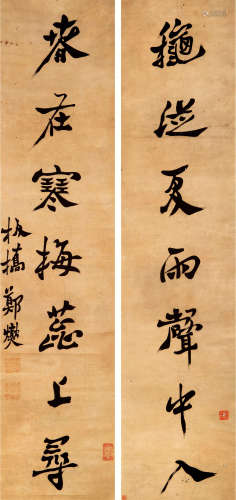 穐從夏雨聲中入
春在寒梅蕊上尋
板橋鄭燮